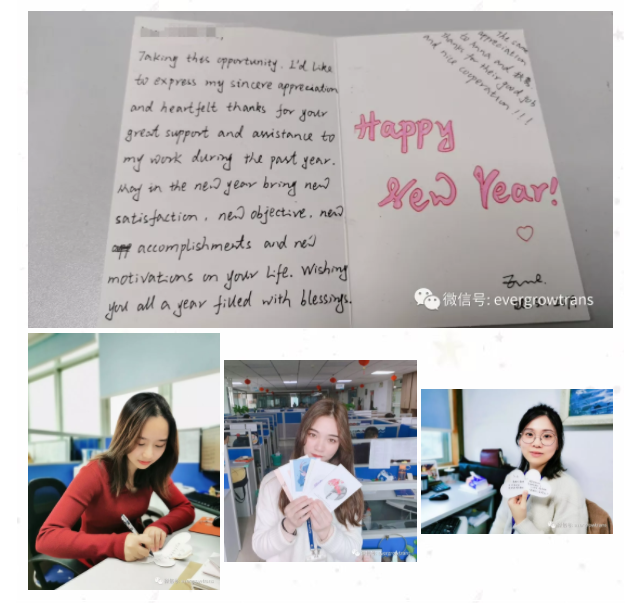 Taking this opportunity. I'd like
to express my sincere appreciation
and heartfelt thanks for your
great support and assistance to
my work during the past year.
May in the new year bring new
satisfaction, new objective, new
accomplishments and new
motivations on your life. Wishing
you all a year filled with blessings.
The same
appreciation
to Anna and
thanks for their good job
and nice cooperation!!!
Happy
New Year!
微信号: evergrowtrans